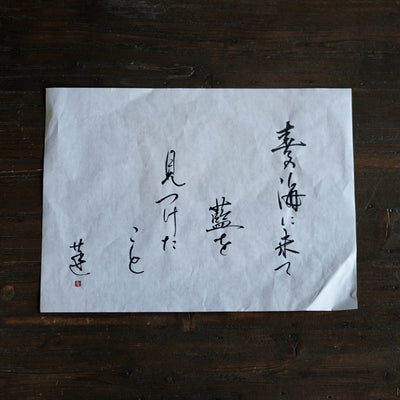 春の海に来て
藍を
見つけた
こと
蓮